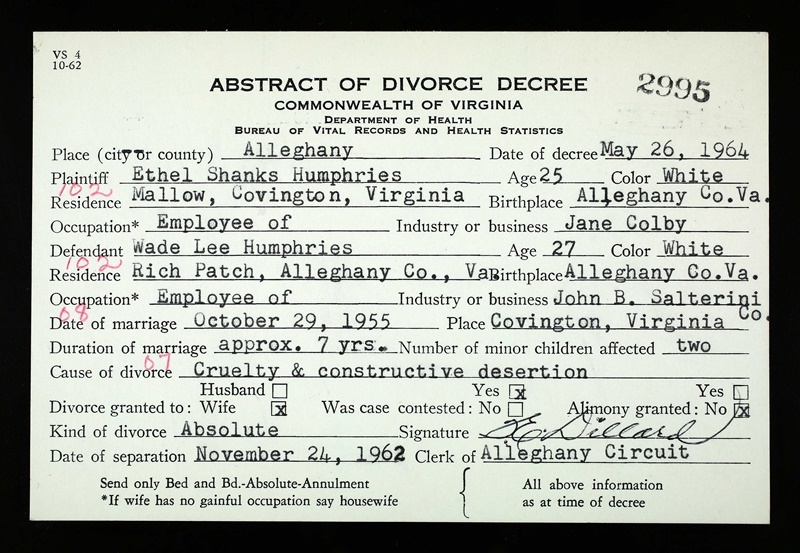 VS 4
10-62
2995
ABSTRACT OF DIVORCE DECREE
COMMONWEALTH OF VIRGINIA
DEPARTMENT OF HEALTH
BUREAU OF VITAL RECORDS AND HEALTH STATISTICS
Place (city or county) Alleghany Date of decree May 26, 1964
Plaintiff Ethel Shanks Humphries Age 25 Color White
102
Residence Mallow, Covington, Virginia Birthplace Alleghany Co.Va.
Occupation* Employee of Industry or business Jane Colby
Defendant Wade Lee Humphries Age 27 Color White
102
Residence Rich Patch, Alleghany Co., Va. Birthplace Alleghany Co.Va.
Occupation* Employee of Industry or business John B. Salterini Co.
08
Date of marriage October 29, 1955 Place Covington, Virginia
Duration of marriage approx. 7 yrs. Number of minor children affected two
07
Cause of divorce Cruelty & constructive desertion
Husband Yes x Yes
Divorce granted to: Wife x Was case contested: No Alimony granted: No x
Kind of divorce Absolute Signature E Dillard
Date of separation November 24, 1962 Clerk of Alleghany Circuit
Send only Bed and Bd.-Absolute-Annulment All above information
*If wife has no gainful occupation say housewife as at time of decree